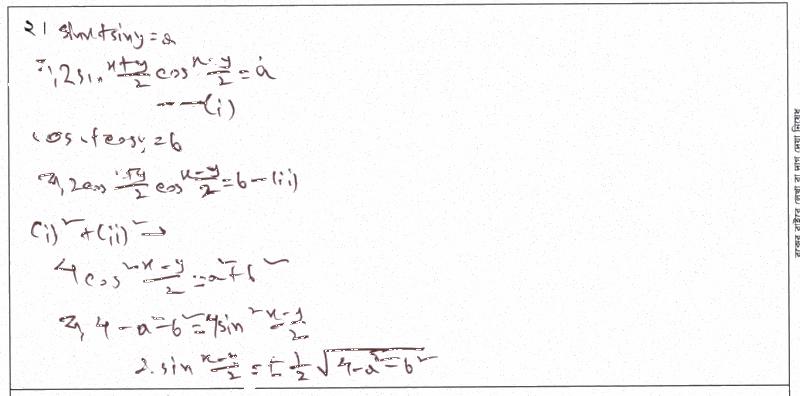 ২। sinx+siny=a
বা, 2sin x+y/2 cos x-y/2 = a
---(i)
cosx+cosy=b
বা, 2cos x+y/2 cos x-y/2 = b-(ii)
(i)²+(ii)² →
4cos² x-y/2 = a²+b²
বা, 4-a²-b² = 4sin² x-y/2
∴ sin x-y/2 = ± 1/2 √4-a²-b²